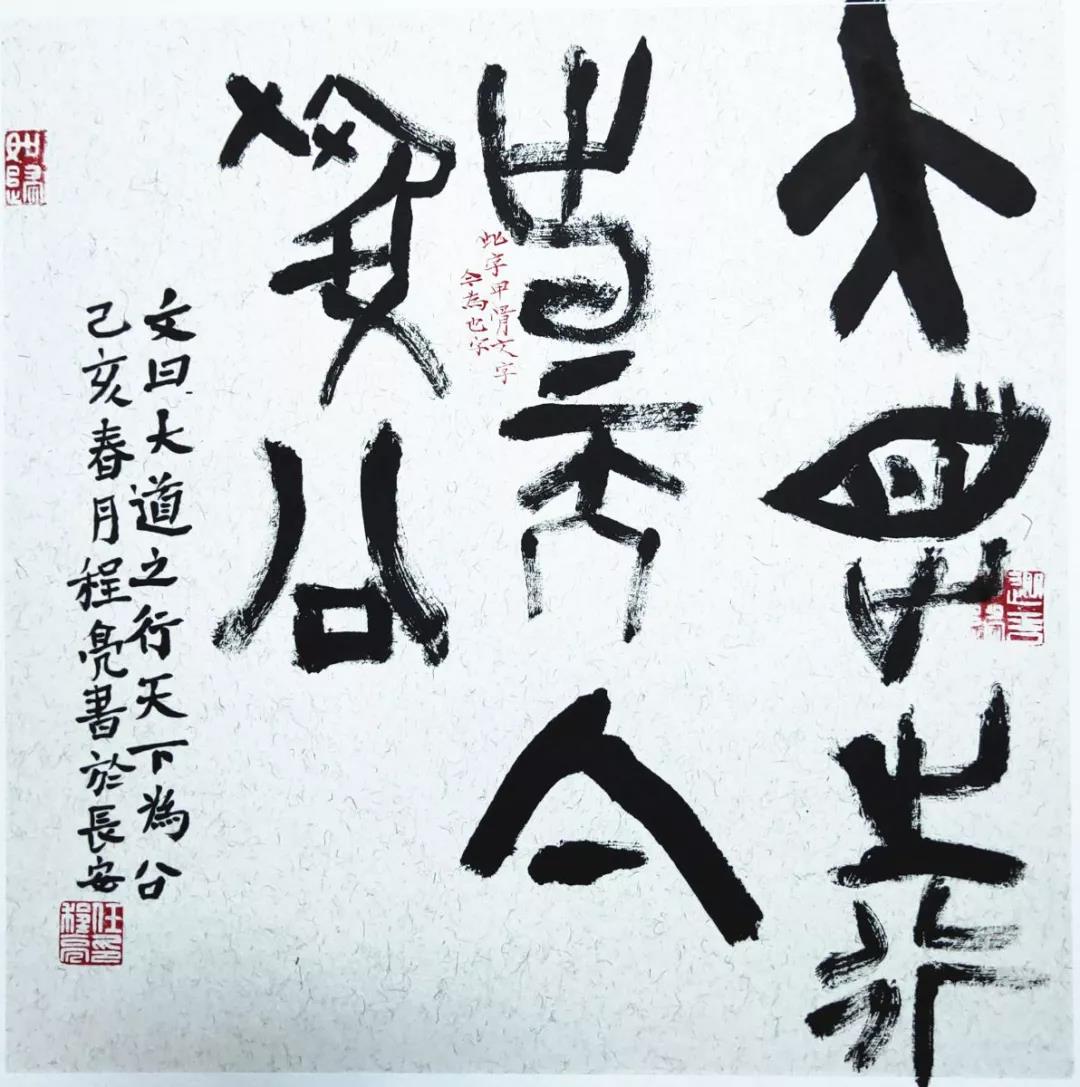 大道之行
也天下
為公
此字甲骨文字
今為也字
文曰大道之行天下為公
己亥春月程亮書於長安